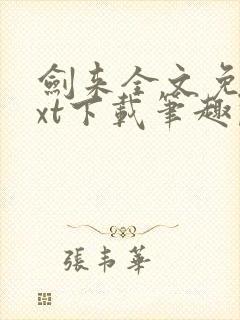 劍来全文免
xt下載筆趣
張韦華